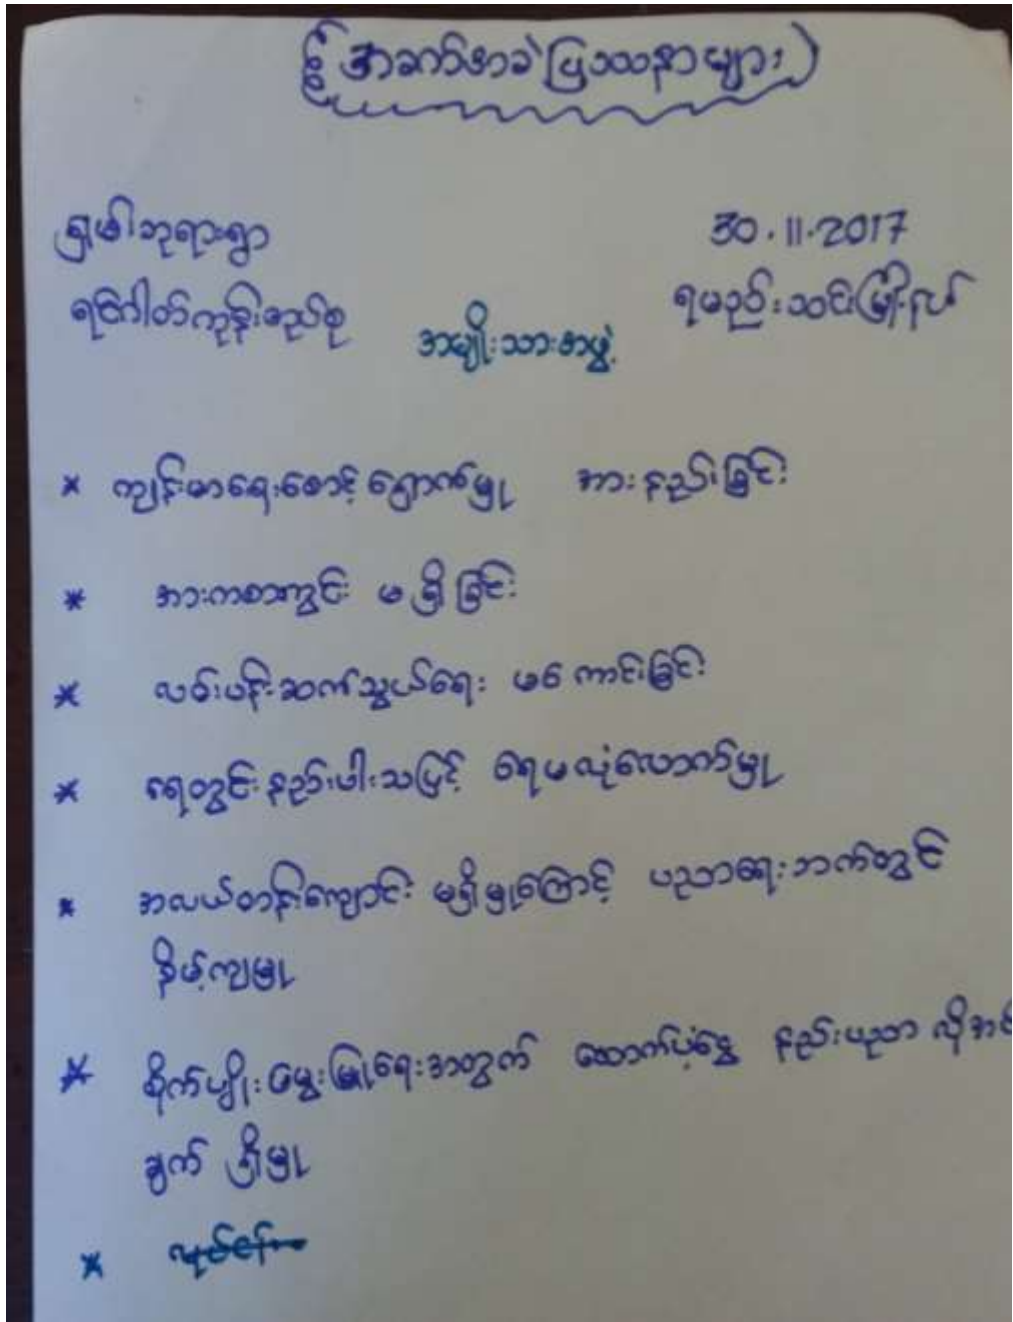 အခက်အခဲပြဿနာများ
ရှမ်းဘုရားရွာ 30.11.2017
ရမည်းသင်းမြို့နယ်
အမျိုးသားအဖွဲ့
* ကျန်းမာရေးစောင့်ရှောက်မှု အားနည်းခြင်း
* အားကစားကွင်း မရှိခြင်း
* လမ်းပန်းဆက်သွယ်ရေး မကောင်းခြင်း
* ရေတွင်းနည်းပါးသဖြင့် ရေမလုံလောက်မှု
* အလယ်တန်းကျောင်း မရှိမှုကြောင့် ပညာရေးဘက်တွင်
နိမ့်ကျမှု
* စိုက်ပျိုးမွေးမြူရေးအတွက် ထောက်ပံ့ငွေ နည်းပညာ လိုအပ်
ချက် ရှိမှု
*